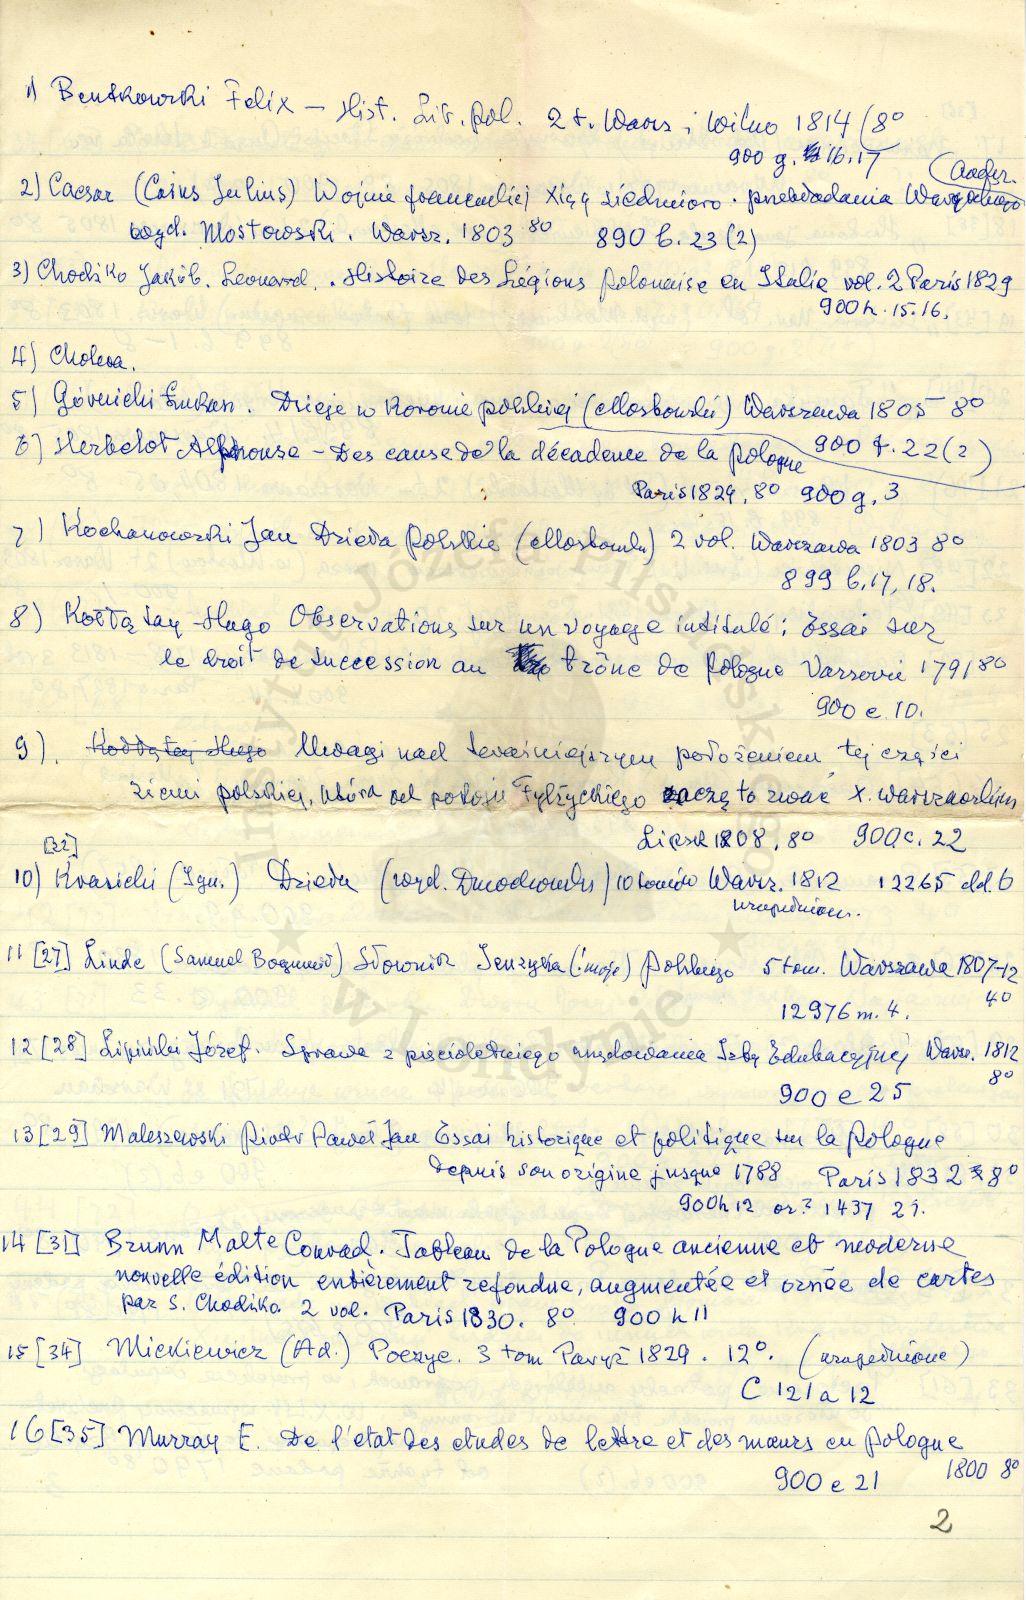 1) Bentkowski Felix – Hist. Lit. pol. 2 t. Warsz i Wilno 1814 (8º
900 g. 16.17
2) Caesar (Caius Julius) Wojnie francuskiej Xiąg siedmioro. przekładania Wargockiego
wyd. Mostowski. Warsz. 1803 8º 890 b. 23 (2)
3) Chodźko Jakób. Leonard. Histoire des Légions polonaise en Italie vol. 2 Paris 1829
900 h. 15.16.
4) Cholewa.
5) Górnicki Łukasz. Dzieje w Koronie polskiej (Mostowski) Warszawa 1805 8º
900 f. 22 (2)
6) Herbelot Alphonse – Des cause de la décadence de la Pologne
Paris 1829, 8º 900 g, 3
7) Kochanowski Jan Dzieła Polskie (Mostowski) 2 vol. Warszawa 1803 8º
899 b. 17, 18.
8) Kołłątay Hugo Observations sur un voyage intitulé: Essai sur
le droit de succession au trône de Pologne Varsovie 1791 8º
900 e. 10.
9). Kołłątaj Hugo Uwagi nad teraźniejszym położeniem tej części
ziemi polskiej, która od pokoju Tylżyckiego zaczęto zwać X. warszawskim
Lipsk 1808, 8º 900 c. 22
[32]
10) Krasicki (Ign.) Dzieła (wyd. Dmochowski) 10 tomów Warsz. 1812 12265 dd. 6
uzupełnion.
11 [27] Linde (Samuel Bogumił) Słownik Jenzyka (!moje) Polskiego 5 tom. Warszawa 1807-12
4º
12976 m. 4.
12 [28] Lipiński Józef. Sprawa z pięcioletniego urzędowania Izby Edukacyjnej Warsz. 1812
8º
900 e 25
13 [29] Maleszewski Piotr Paweł Jan Essai historique et politique sur la Pologne
depuis son origine jusque 1788 Paris 1832 8º
900 h 12 or? 1437 21.
14 [31] Brunn Malte Conrad. Tableau de la Pologne ancienne et moderne
nouvelle édition entièrement refondue, augmentée et ornée de cartes
par S. Chodźko 2 vol. Paris 1830. 8º 900 h 11
15 [34] Mickiewicz (Ad.) Poezye. 3 tom Paryż 1829. 12º. (uzupełnione)
C 121 a 12
16 [35] Murray E. De l'etat des etudes de lettre et des mœurs en Pologne
1800 8º
900 e 21
2
Instytut Józefa Piłsudskiego ★ w Londynie ★